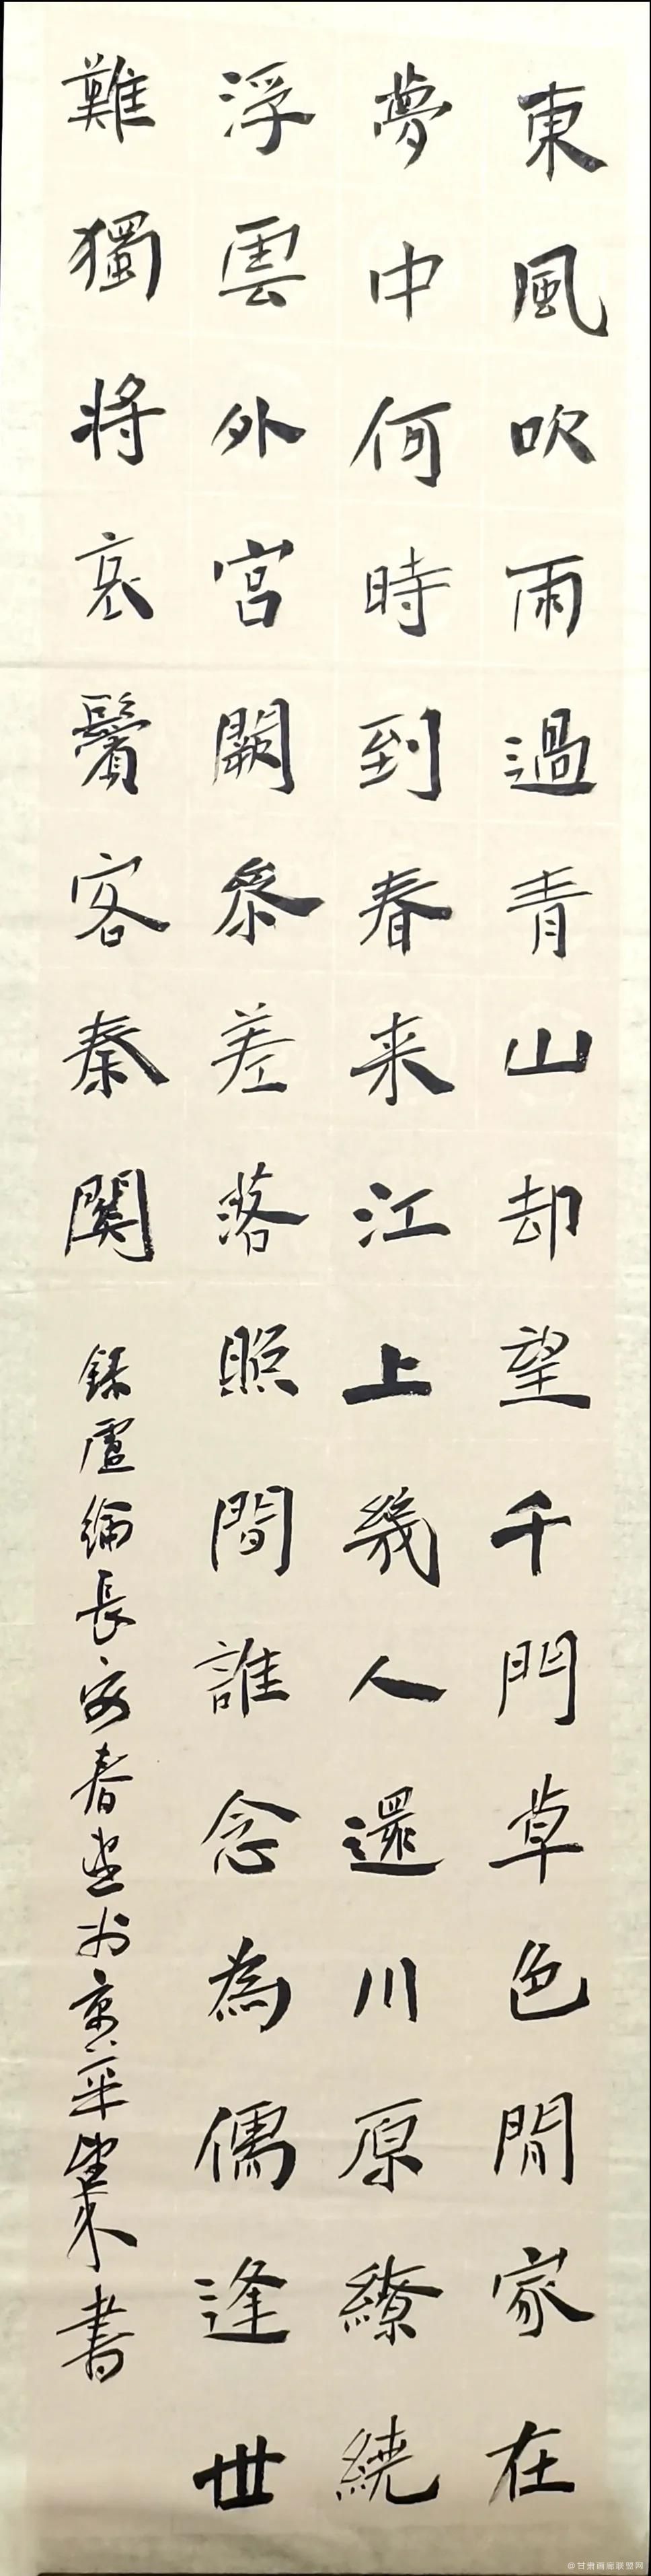 東風吹雨過青山却望千門草色閒家在
夢中何時到春来江上幾人還川原繚繞
浮雲外宮闕参差落照間誰念為儒逢世
難獨将衰鬢客秦関
録盧綸長安春望於
書
@甘肃画廊联盟网